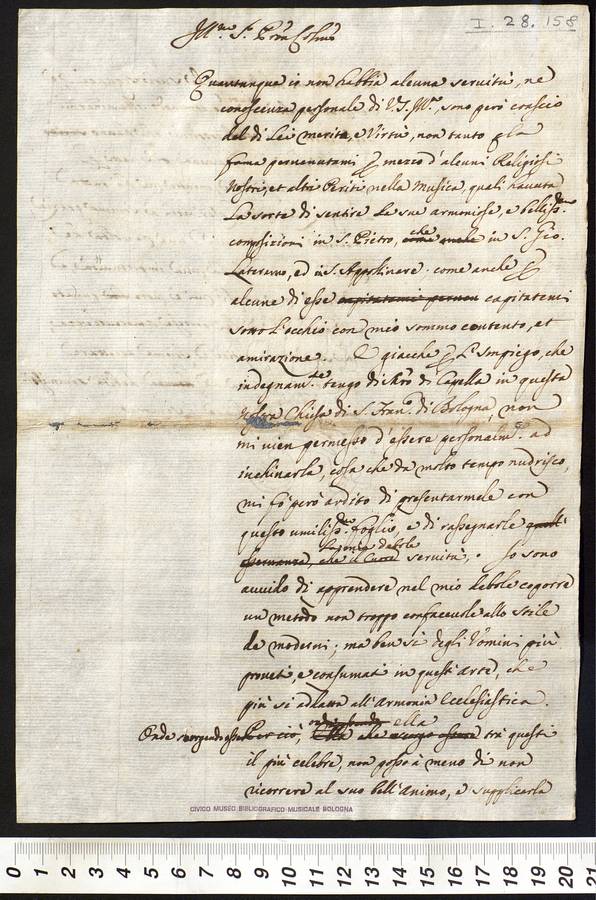 I. 28. 158
Ill.mo S.r P.ron Col.mo
Quantunque io non habbia alcuna servitù, ne
conoscenza personale di V.S. Ill.ma, sono però conscio
del di Lei merito, e Virtù, non tanto p la
fama pervenutami p mezzo d'alcuni Religiosi
Nostri, et altri Periti nella Musica, quali havuta
La sorte di sentire Le sue armoniose, e belliss.me
composizioni in S. Pietro, che in S. Gio.
Laterano, ed in S. Apolinare. come anche p
alcune di esse capitatemi
sotto L'occhio con mio sommo contento, et
amirazione. E giacche p L'Impiego, che
indegnam.te tengo di M.ro di Capella in questa
Nostra Chiesa di S. Fran.o di Bologna, non
mi vien permesso d'essere personalm.e ad
inchinarla, cosa che da molto tempo nudrisco,
mi fò però ardito di presentarmele con
questo umiliss.mo foglio, e di rassegnarle
La mia debole
servitù. Io sono
avvido di apprendere nel mio debole
un metodo non troppo confacevole allo stile
de moderni; ma ben sì degli Uomini più
provetti, e consumati in quest'arte, che
più si adattan all'Armonia Ecclesiastica.
ella
Onde trà questi
il più celebre, non posso à meno di non
ricorrere al suo bell'animo, e supplicarla
CIVICO MUSEO BIBLIOGRAFICO MUSICALE BOLOGNA
0 1 2 3 4 5 6 7 8 9 10 11 12 13 14 15 16 17 18 19 20 21